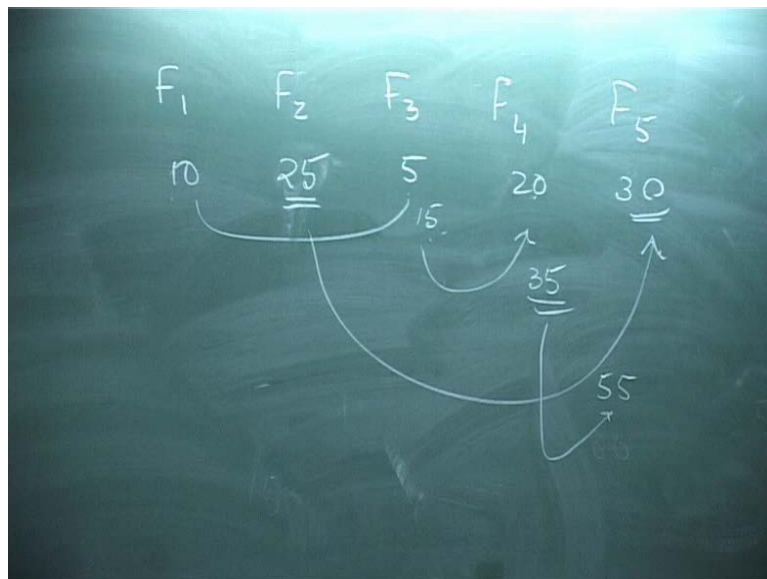 F1 F2 F3 F4 F5
10 25 5 20 30
15
35
55